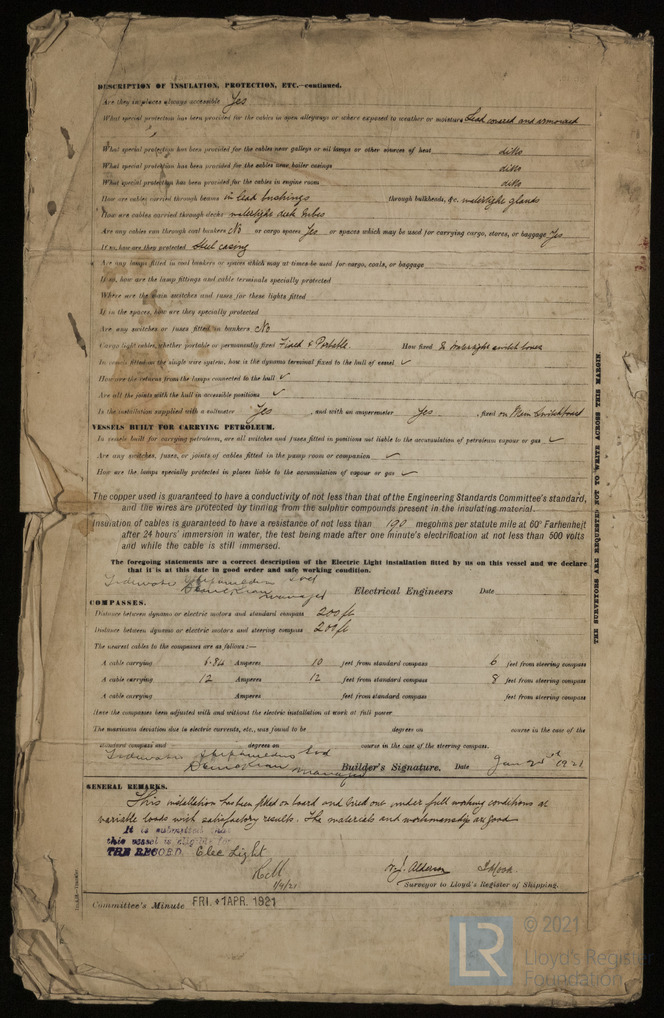 DESCRIPTION OF INSULATION, PROTECTION, ETC.—continued.
Are they in places always accessible Yes
What special protection has been provided for the cables in open alleyways or where exposed to weather or moisture Lead covered and armoured
What special protection has been provided for the cables near galleys or oil lamps or other sources of heat ditto
What special protection has been provided for the cables near boiler casings ditto
What special protection has been provided for the cables in engine room ditto
How are cables carried through beams in lead bushings through bulkheads, &c. watertight glands
How are cables carried through decks watertight deck tubes
Are any cables run through coal bunkers No or cargo spaces Yes or spaces which may be used for carrying cargo, stores, or baggage Yes
If so, how are they protected Steel casing
Are any lamps fitted in coal bunkers or spaces which may at times be used for cargo, coals, or baggage
If so, how are the lamp fittings and cable terminals specially protected
Where are the main switches and fuses for these lights fitted
If in the spaces, how are they specially protected
Are any switches or fuses fitted in bunkers No
Cargo light cables, whether portable or permanently fixed Fixed & Portable How fixed & Watertight switch boxes
In vessels fitted on the single wire system, how is the dynamo terminal fixed to the hull of vessel ✓
How are the returns from the lamps connected to the hull ✓
Are all the joints with the hull in accessible positions ✓
Is the installation supplied with a voltmeter Yes , and with an amperemeter Yes , fixed on Main Switchboard
VESSELS BUILT FOR CARRYING PETROLEUM.
In vessels built for carrying petroleum, are all switches and fuses fitted in positions not liable to the accumulation of petroleum vapour or gas ✓
Are any switches, fuses, or joints of cables fitted in the pump room or companion ✓
How are the lamps specially protected in places liable to the accumulation of vapour or gas ✓
The copper used is guaranteed to have a conductivity of not less than that of the Engineering Standards Committee's standard,
and the wires are protected by tinning from the sulphur compounds present in the insulating material.
Insulation of cables is guaranteed to have a resistance of not less than 190 megohms per statute mile at 60° Farhenheit
after 24 hours' immersion in water, the test being made after one minute's electrification at not less than 500 volts
and while the cable is still immersed.
The foregoing statements are a correct description of the Electric Light installation fitted by us on this vessel and we declare
that it is at this date in good order and safe working condition.
Manager Electrical Engineers Date
COMPASSES.
Distance between dynamo or electric motors and standard compass 200 ft
Distance between dynamo or electric motors and steering compass 200 ft
The nearest cables to the compasses are as follows:—
A cable carrying 6.84 Amperes 10 feet from standard compass 6 feet from steering compass
A cable carrying 12 Amperes 12 feet from standard compass 8 feet from steering compass
A cable carrying Amperes feet from standard compass feet from steering compass
Have the compasses been adjusted with and without the electric installation at work at full power
The maximum deviation due to electric currents, etc., was found to be degrees on course in the case of the
standard compass and degrees on course in the case of the steering compass.
Manager Builder's Signature. Date Jan 1921
GENERAL REMARKS.
This installation has been fitted on board and tried out under full working conditions at
variable loads with satisfactory results. The materials and workmanship are good
It is submitted that
this vessel is eligible for
THE RECORD. Elec Light
1/4/21
Surveyor to Lloyd's Register of Shipping.
Committee's Minute FRI. 1 APR. 1921
THE SURVEYORS ARE REQUESTED NOT TO WRITE ACROSS THIS MARGIN.
LR
© 2021
Lloyd's Register
Foundation